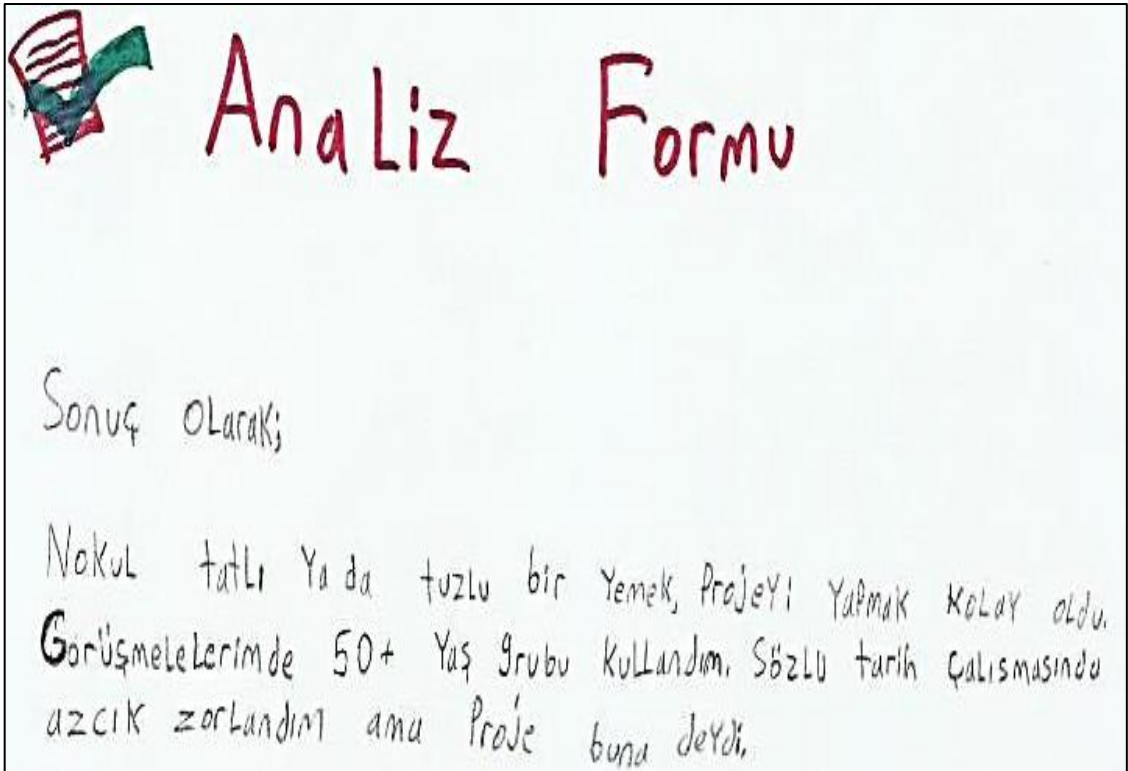 Analiz Formu
Sonuç olarak;
Nokul tatlı ya da tuzlu bir yemek, Projeyi yapmak kolay oldu.
Görüşmelelerimde 50+ yaş grubu kullandım. Sözlü tarih çalısmasında
azcık zorlandım ama Proje buna deydi.